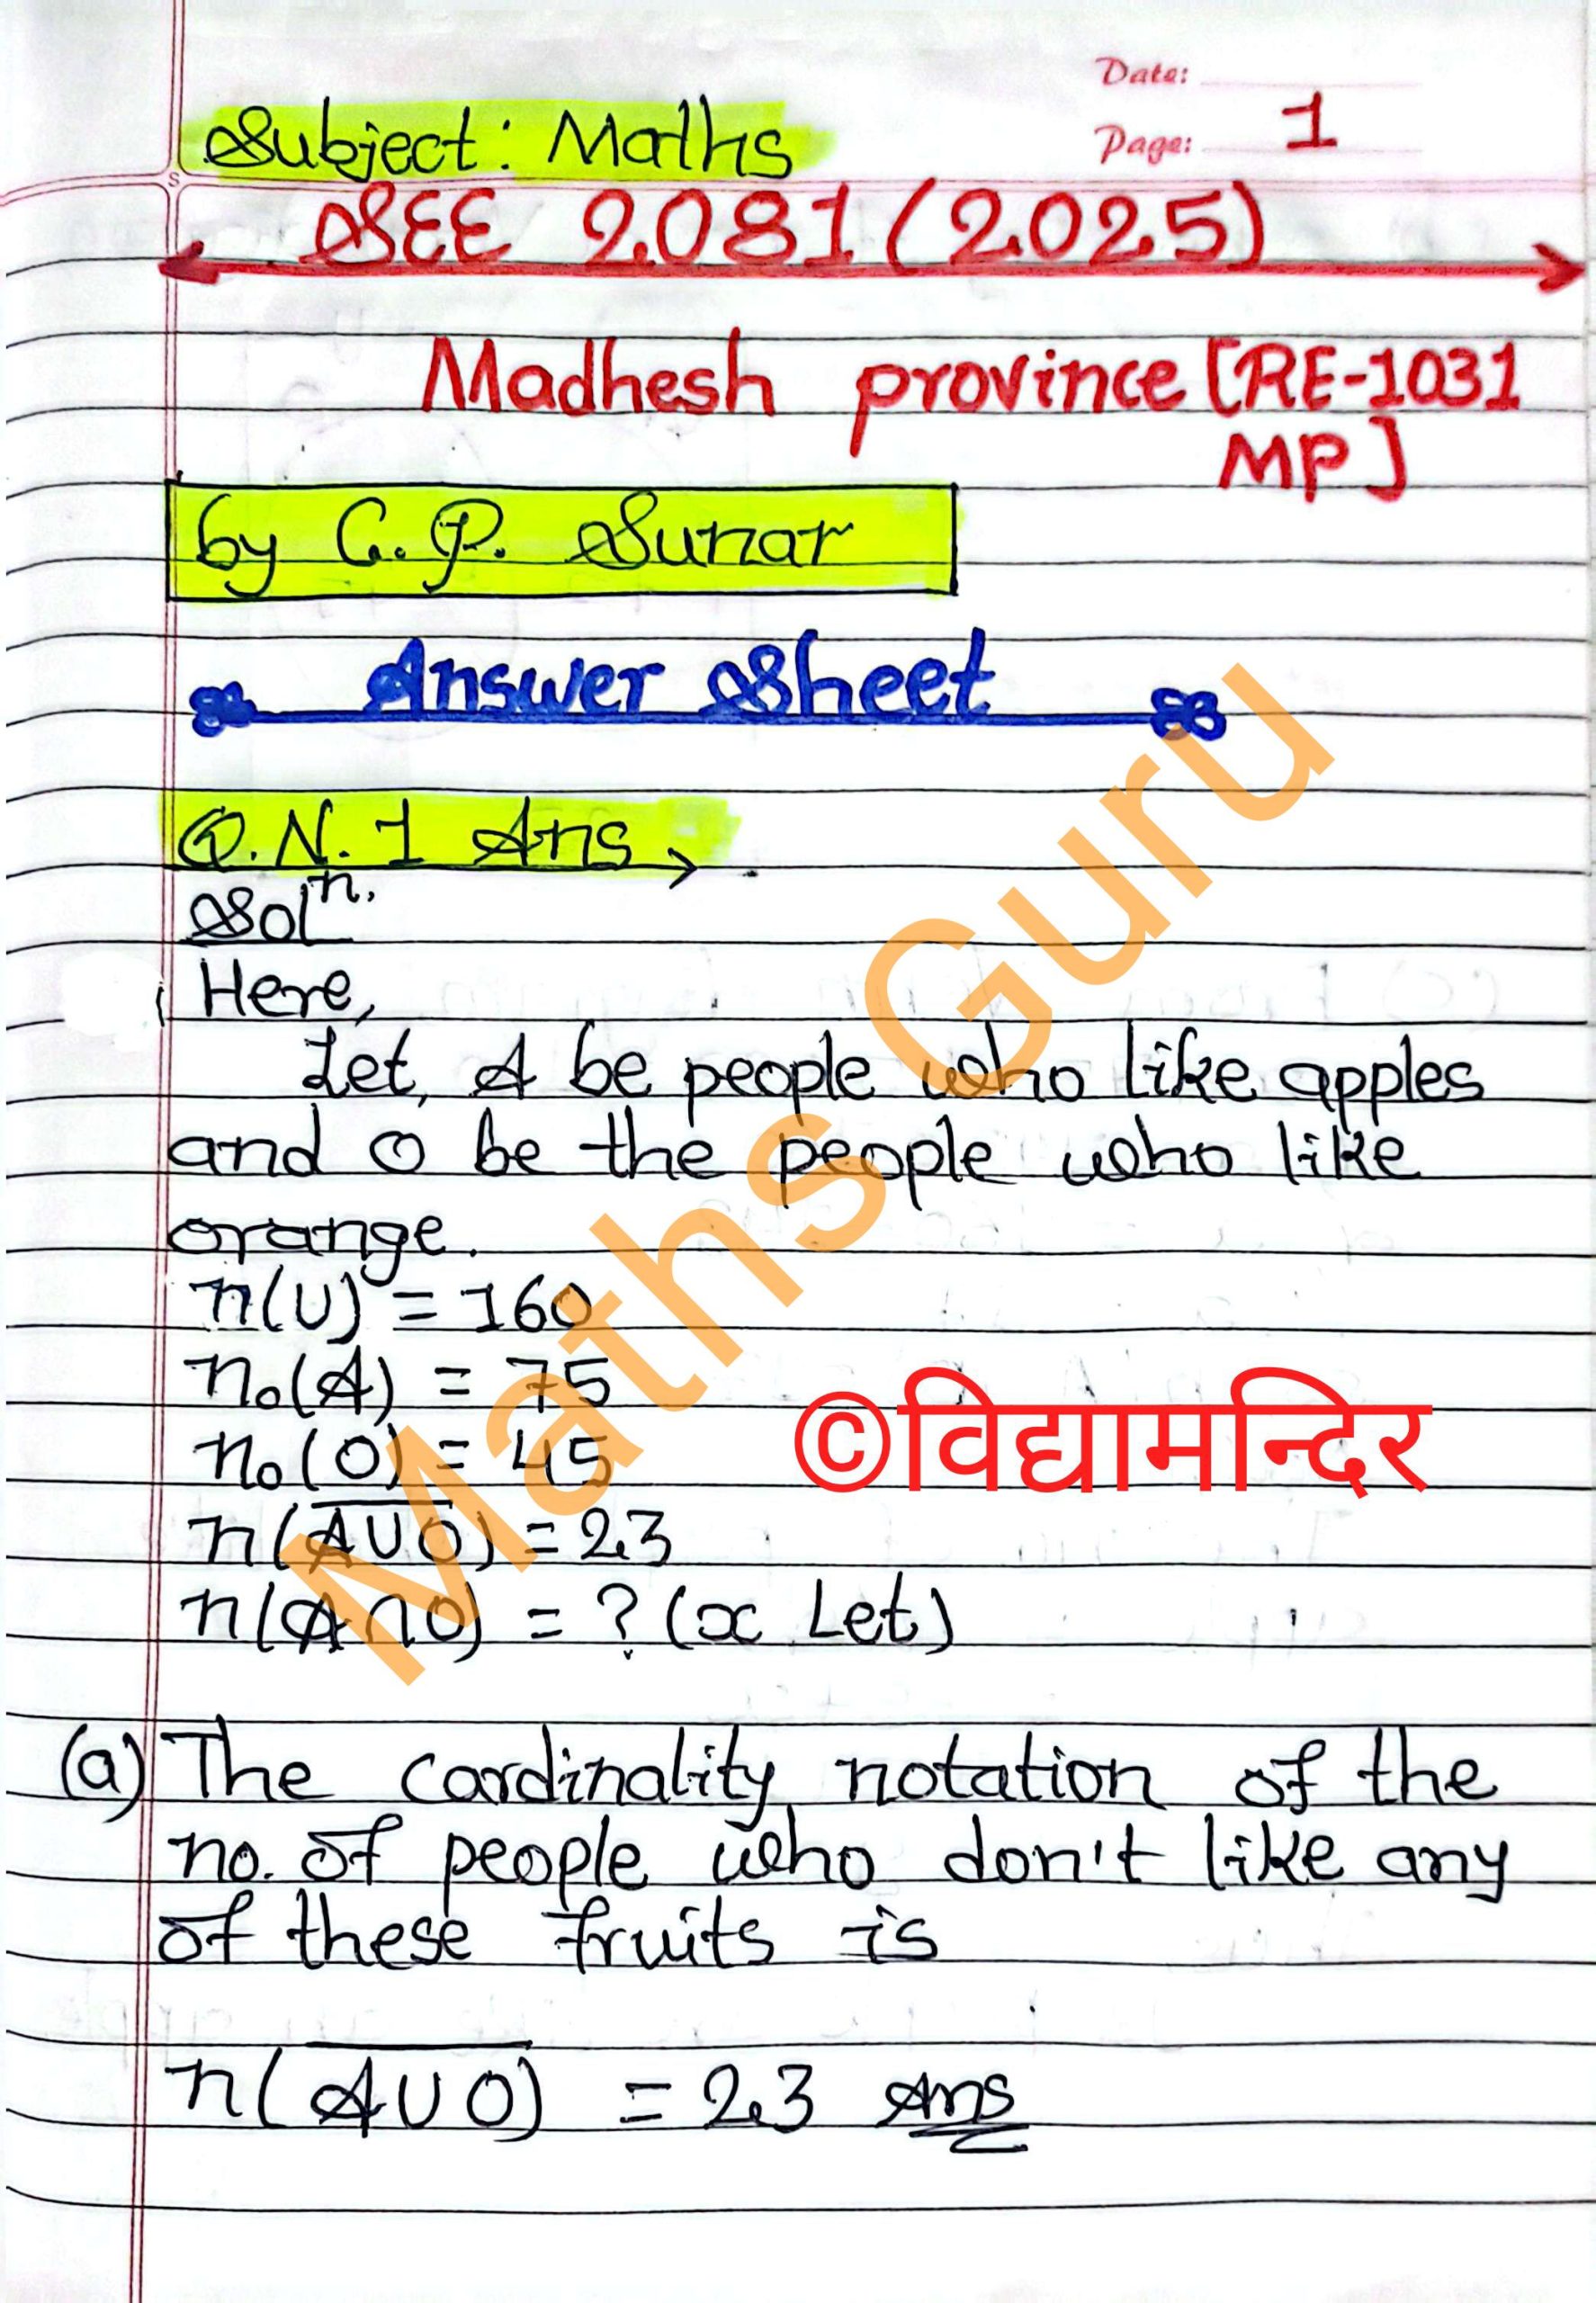 Date:
Subject: Maths
Page: 1
SEE 2081 (2025)
Madhesh province [RE-1031
MP]
by C.P. Sunar
Answer Sheet
Q.N. 1 Ans
Solⁿ.
Here,
Let, A be people who like apples
and O be the people who like
orange.
n(U) = 160
n₀(A) = 75
n₀(O) = 45
©विद्यामन्दिर
n(A̅∪̅O̅) = 23
n(A∩O) = ? (x Let)
(a) The cardinality notation of the
no. of people who don't like any
of these fruits is
n(A̅∪̅O̅) = 23 Ans
Maths Guru